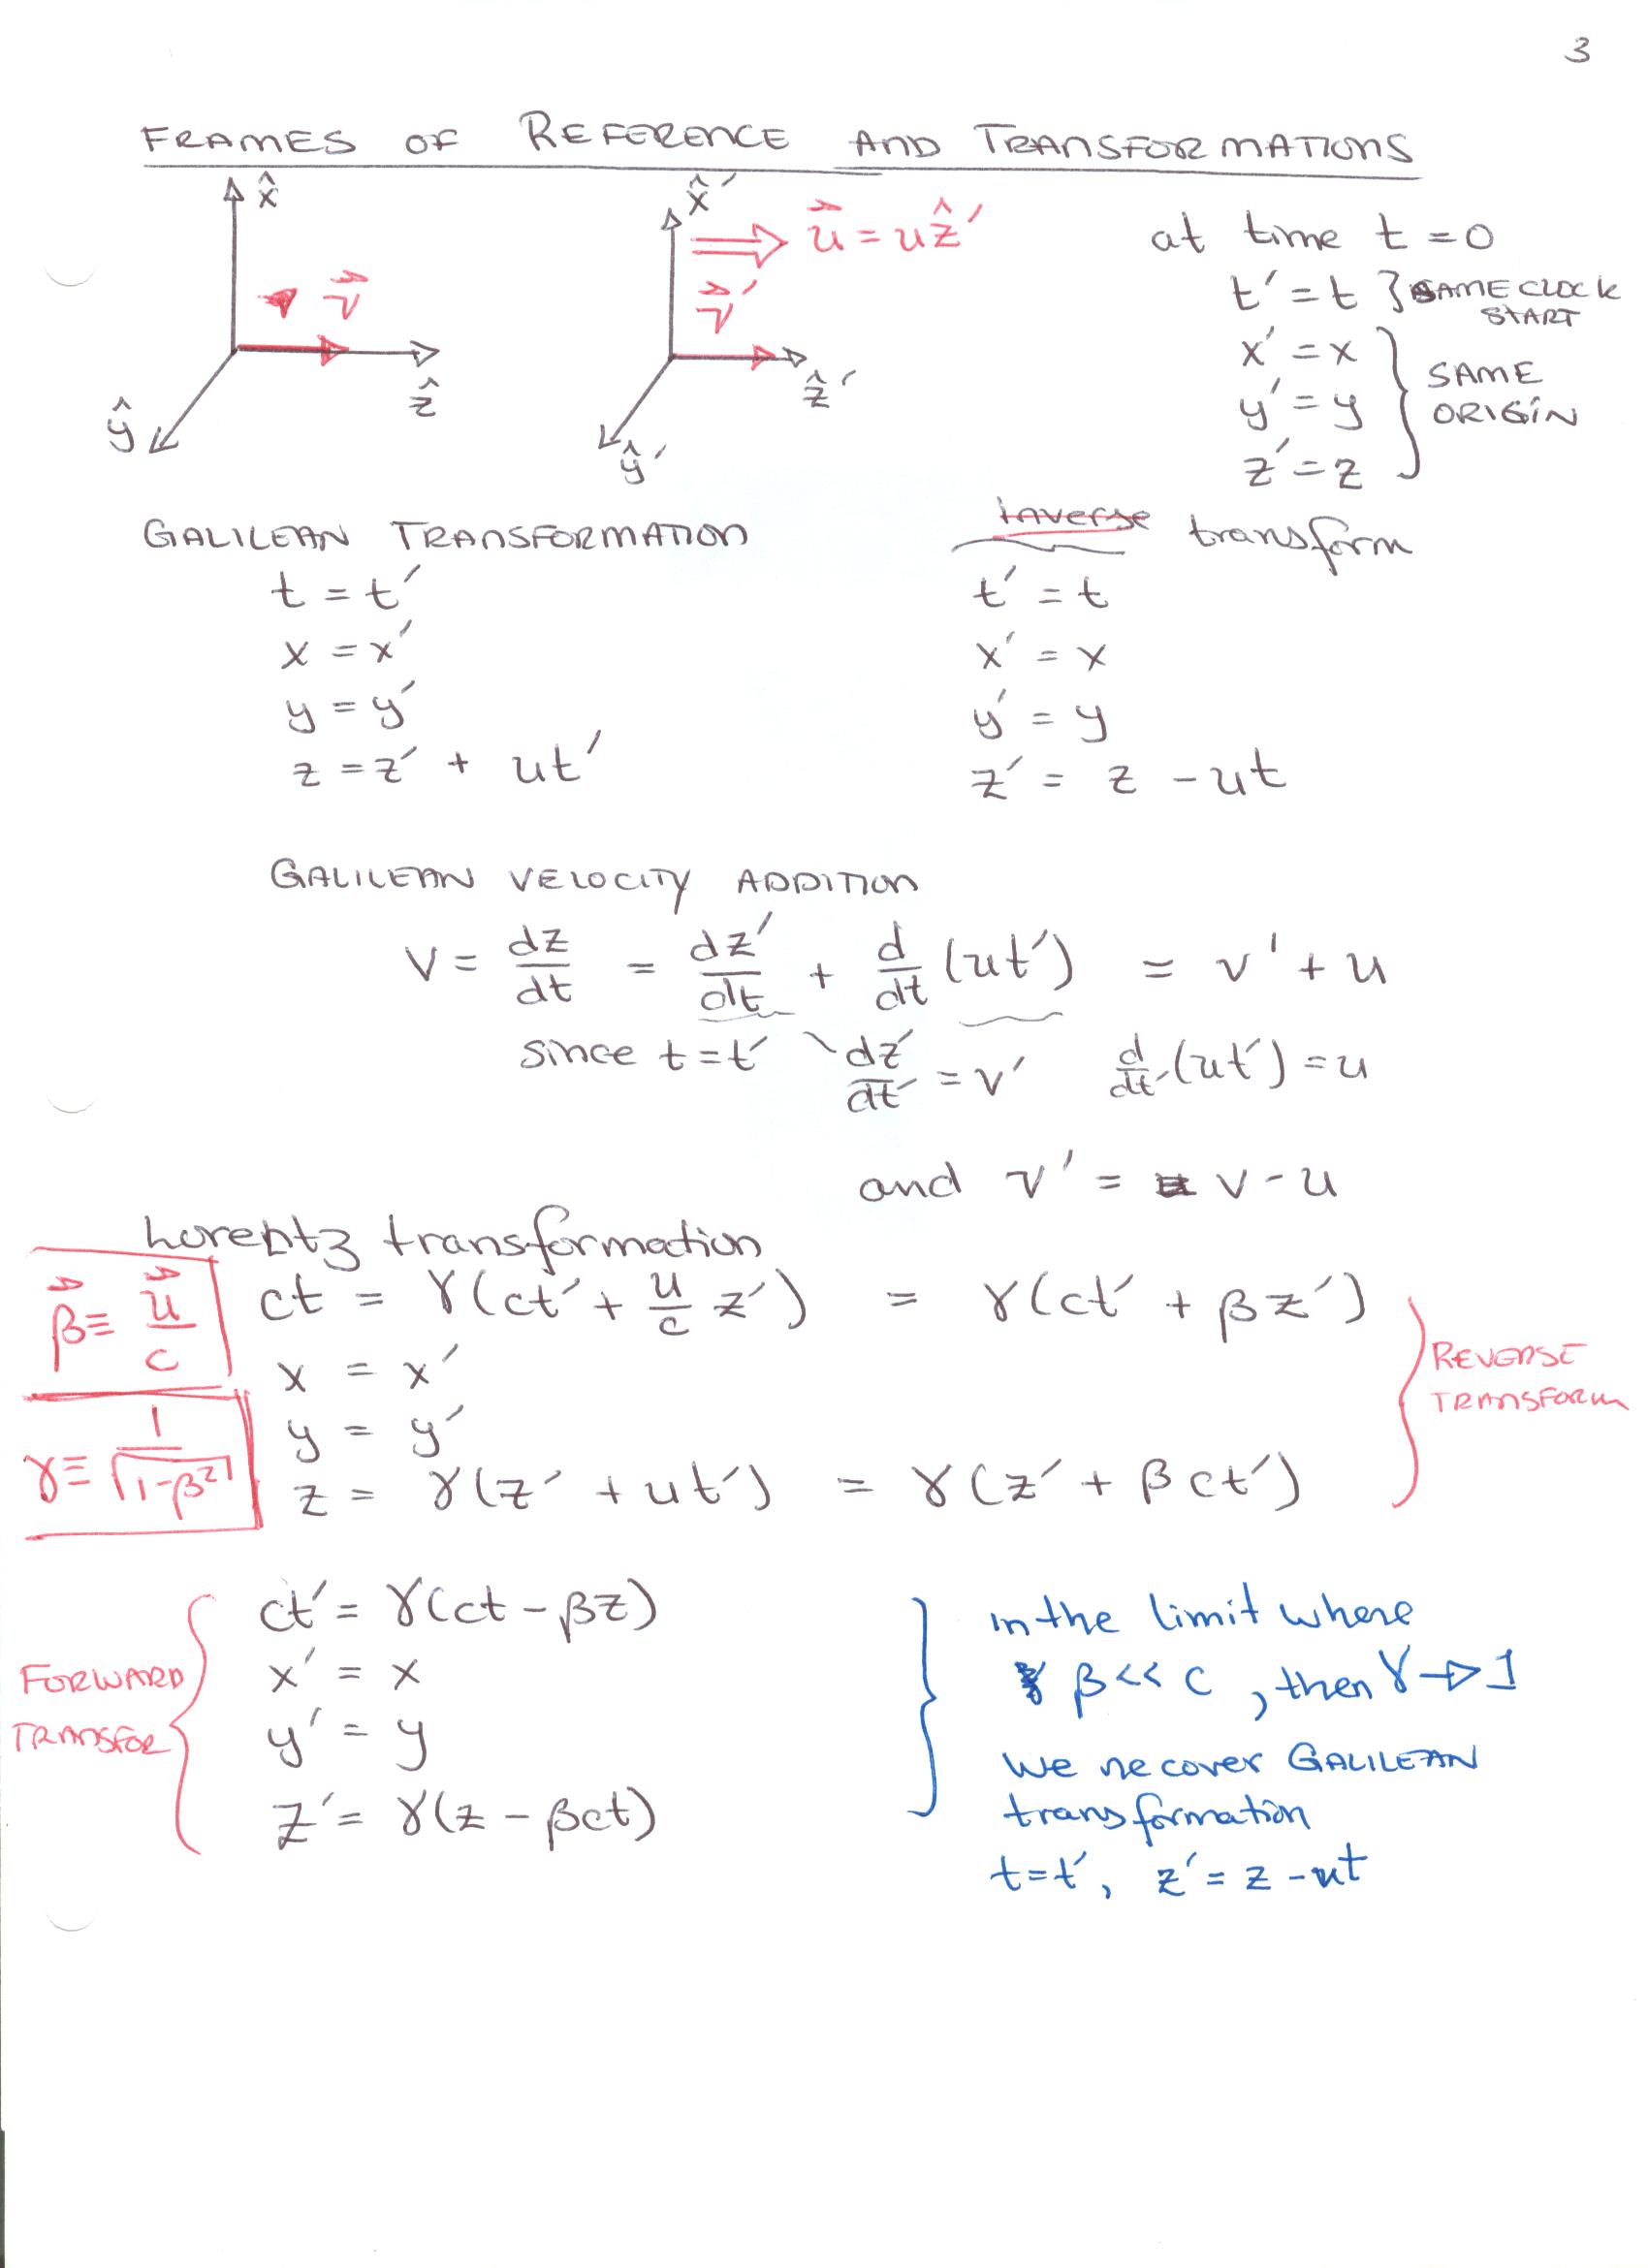 3
FRAMES OF REFERENCE AND TRANSFORMATIONS
x̂
ŷ
ẑ
v⃗
x̂′
ŷ′
ẑ′
v⃗′
u⃗ = u ẑ′
at time t = 0
t′ = t } SAME CLOCK START
x′ = x
y′ = y
z′ = z
SAME
ORIGIN
GALILEAN TRANSFORMATION
t = t′
x = x′
y = y′
z = z′ + ut′
inverse transform
t′ = t
x′ = x
y′ = y
z′ = z - ut
GALILEAN VELOCITY ADDITION
v = dz/dt = dz′/dt + d/dt (ut′) = v′ + u
since t = t′ dz′/dt′ = v′ d/dt′ (ut′) = u
and v′ = v - u
Lorentz transformation
β⃗ ≡ u⃗/c
γ ≡ 1/√(1-β²)
ct = γ(ct′ + u/c z′) = γ(ct′ + βz′)
x = x′
y = y′
z = γ(z′ + ut′) = γ(z′ + βct′)
REVERSE
TRANSFORM
FORWARD
TRANSFOR
ct′ = γ(ct - βz)
x′ = x
y′ = y
z′ = γ(z - βct)
in the limit where
β << c, then γ → 1
We recover GALILEAN
transformation
t = t′, z′ = z - ut